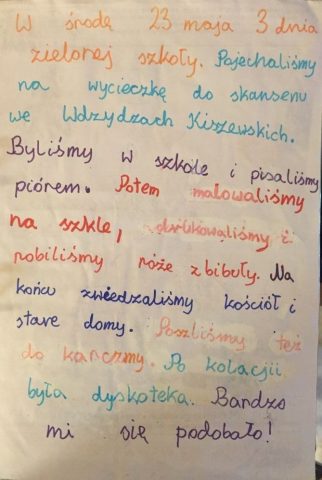 W środę 23 maja 3 dnia
zielonej szkoły. Pojechaliśmy
na wycieczkę do skansenu
we Wdzydzach Kiszewskich.
Byliśmy w szkole i pisaliśmy
piórem. Potem malowaliśmy
na szkle, drukowaliśmy i
robiliśmy róże z bibuły. Na
końcu zwiedzaliśmy kościół i
stare domy. Poszliśmy też
do karczmy. Po kolacjii
była dyskoteka. Bardzo
mi się podobało!